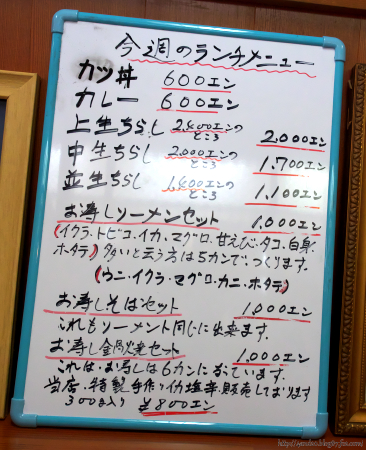 今週のランチメニュー
カツ丼 600エン
カレー 600エン
上生ちらし 2,400エンのところ 2,000エン
中生ちらし 2,000エンのところ 1,700エン
並生ちらし 1,400エンのところ 1,100エン
お寿しソーメンセット 1,000エン
(イクラ・トビコ・イカ・マグロ・甘えび・タコ・白身・
ホタテ)多いと云う方は5カンでつくります。
(ウニ・イクラ・マグロ・カニ・ホタテ)
お寿しそばセット 1,000エン
これもソーメント同じに出来ます。
お寿し 焼セット 1,000エン
これは・お寿しは6カンになっています。
当店・特製手作りイカ塩辛・販売しております
300g入り ¥800エン